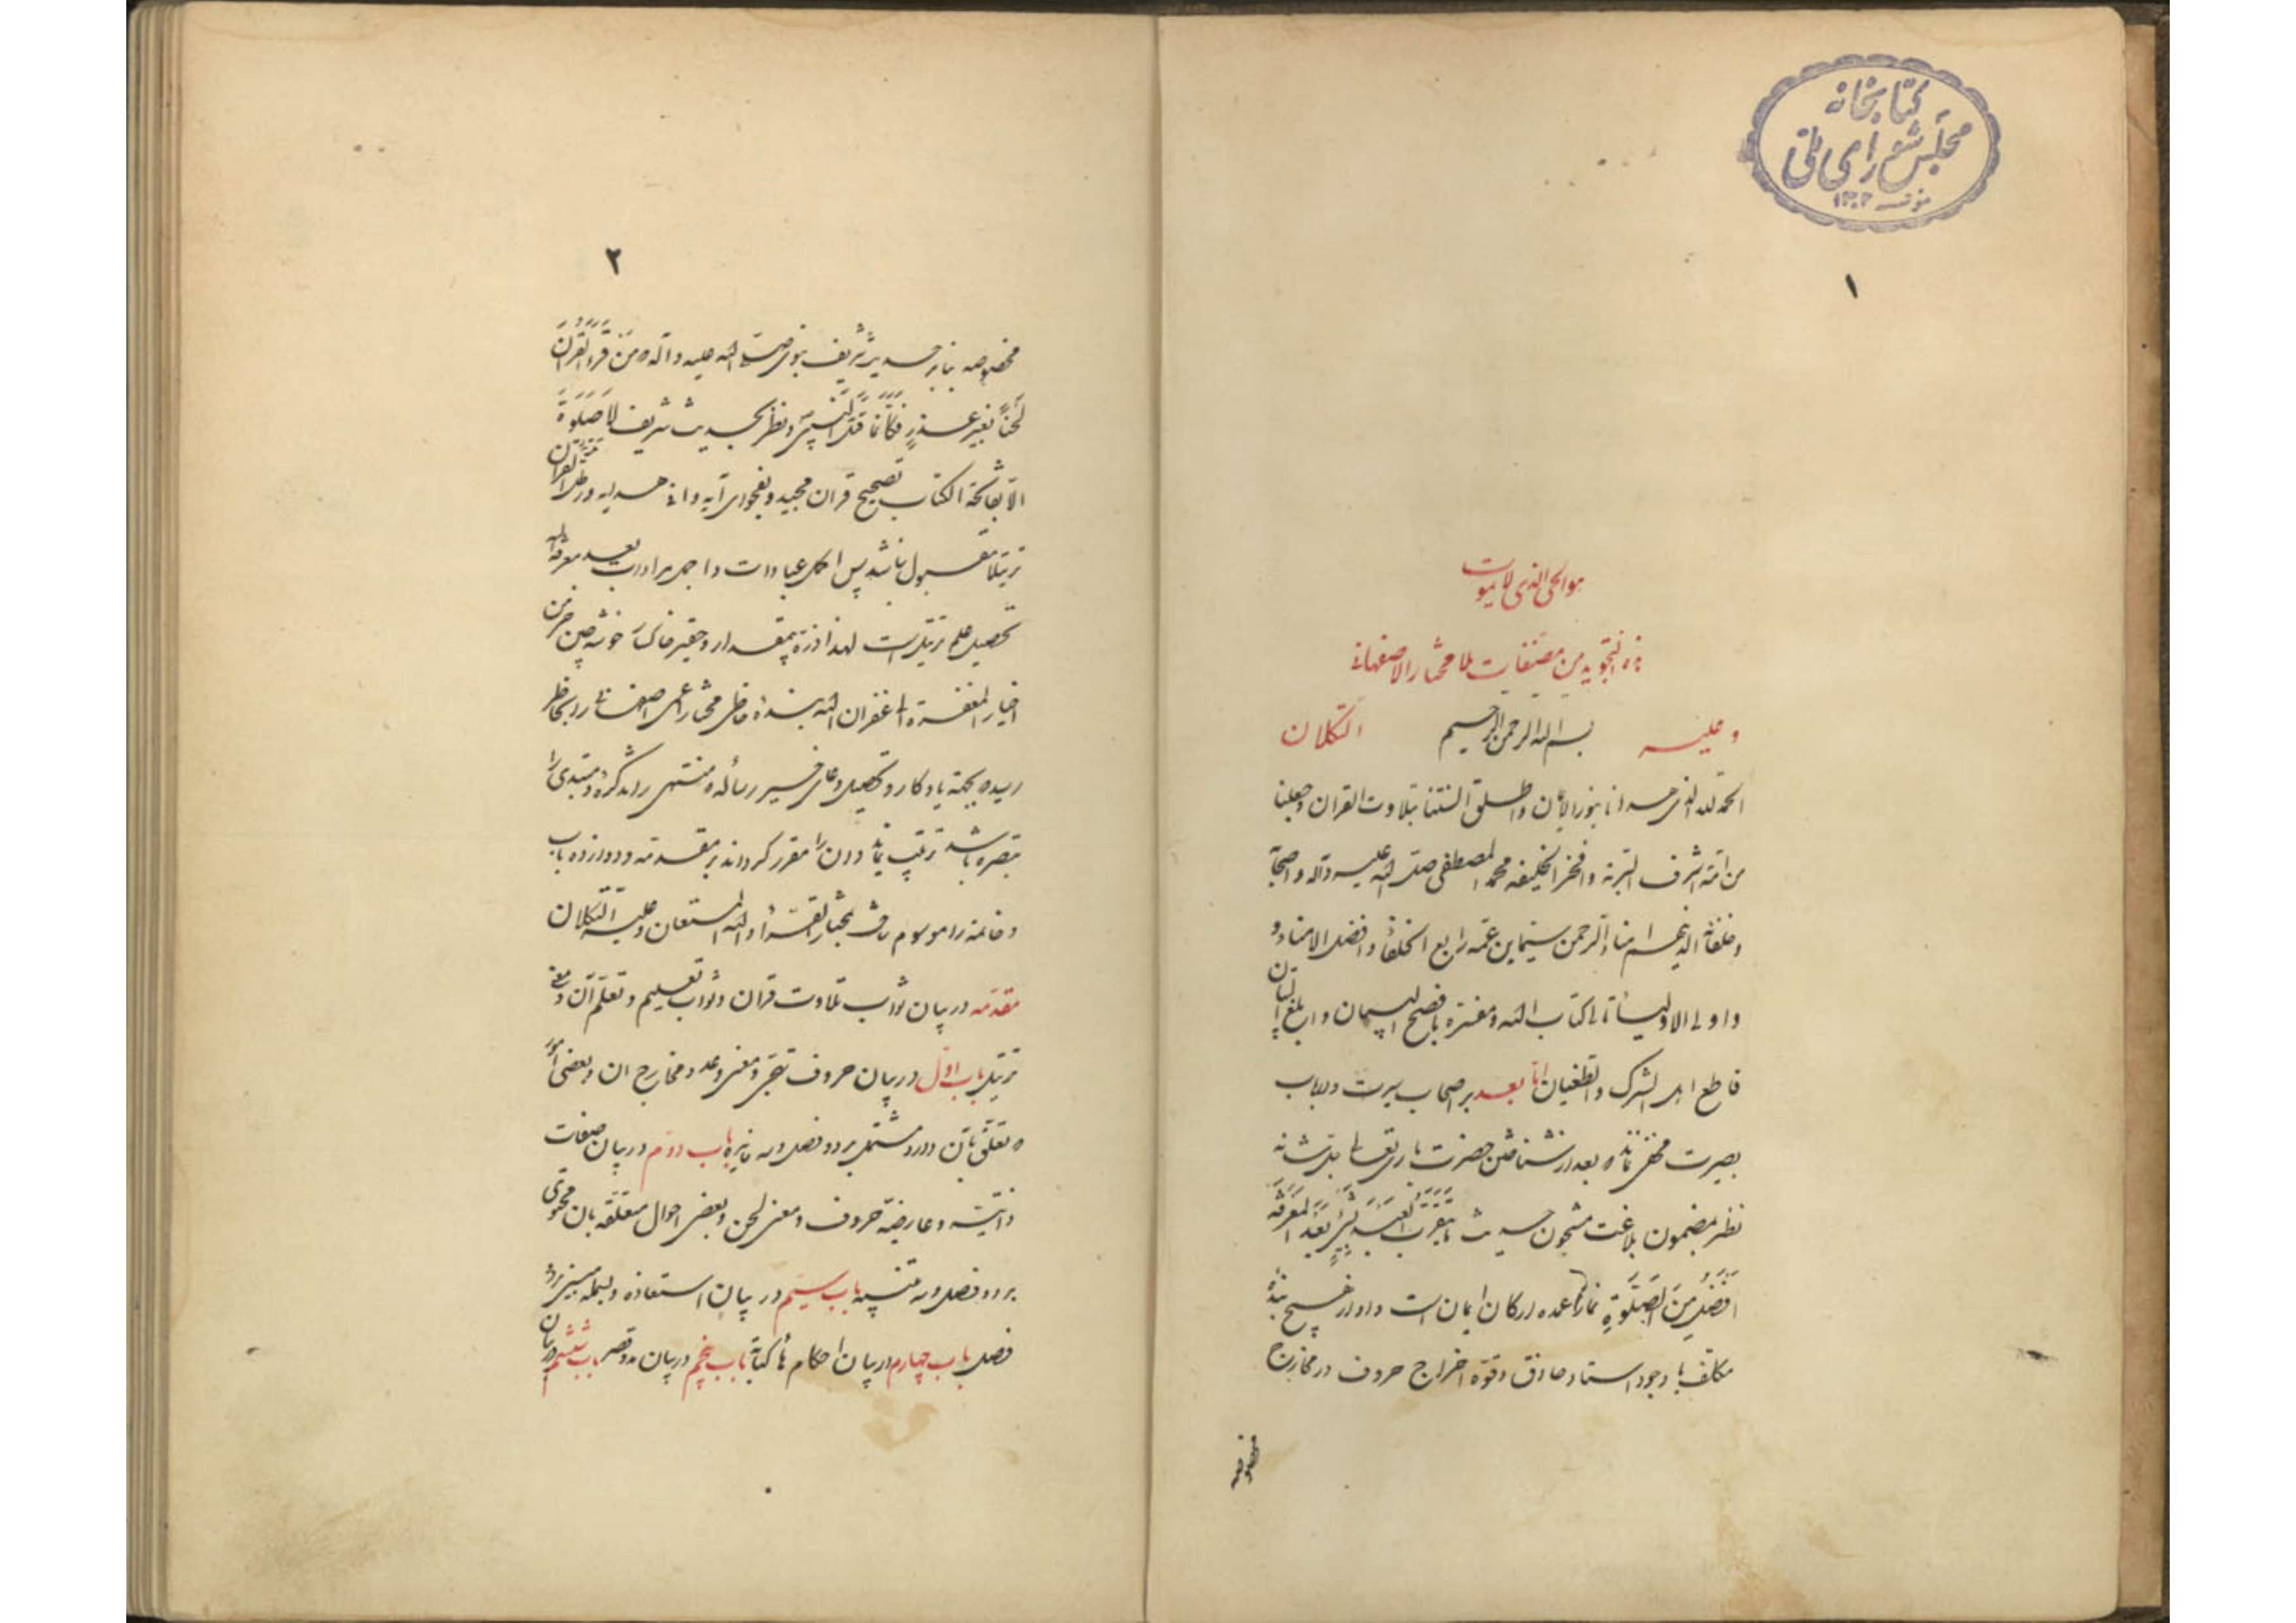 کتابخانه
مجلس شورای ملی
مؤسسه ۱۳۰۲
۱
هو الحی الذی لا یموت
هذه التجوید من مصنفات ملا مختار الاصفهانی
و علیه بسم الله الرحمن الرحیم التکلان
الحمد لله الذی هدانا بنور الایمان و اطلق السنتنا بتلاوت القران و جعلنا
من امّة اشرف البریّة و افخر الخلیفه محمد المصطفی صلی الله علیه و آله و اصحابه
و خلفائه الذینهم امناء الرحمن سیّما ابن عمّه رابع الخلفاء و افضل الامناء و
و اولی الاولیاء تالی کتاب الله و مفسّره بافصح البیان و ابلغ اللسان
قاطع اهل الشرک و الطغیان امّا بعد بر اصحاب سیرت و ارباب
بصیرت مخفی نماند که بعد از شناختن حضرت باری تعالی جلّ شانه
نظر بمضمون بلاغت مشحون حدیث ما یتقرّب العبد بشیءٍ بعد المعرفة
افضل من الصلوة نماز که عمده ارکان ایمان است و او از هیچ بندهٔ
مکلف با وجود استاد حاذق و قوّه اخراج حروف در مخارج
مخصوصه
۲
مخصوصه بنابر حدیث شریف نبوی صلی الله علیه و آله که من قرء القران
لحناً بغیر عذرٍ فکأنما قتل النبیّ و نظر بحدیث شریف لا صلوة
الّا بفاتحة الکتاب تصحیح قران مجید و بفحوای آیه وافی هدایه و رتّل القران
ترتیلا مقبول نباشد پس اکمل عبادات و اجمل مرادات بعد معرفة الله
تحصیل علم ترتیل است لهذا ذرّه بیمقدار و حقیر خاکسار خوشه چین خرمن
اخیار المفتقر الی غفران الله بنده فاضل مختار اعمی اصفهانی را بخاطر
رسیده بجهة یادکار و تحصیل دعای خیر رساله که منتهی را تذکره و مبتدی را
تبصره باشد ترتیب نماید و آن را مقرر کرداند بر مقدمه و دوازده باب
و خاتمه و موسوم ساخت بمختار القرّاء و الله المستعان و علیه التکلان
مقدمه در بیان ثواب تلاوت قران و ثواب تعلیم و تعلّم آن و معنی
ترتیل باب اوّل در بیان حروف تهجّی و معنی و عدد و مخارج ان و بعضی امور
که تعلّق بآن دارد مشتمل بر دو فصل و سه فایده باب دوّم در بیان صفات
ذاتیّه و عارضیّه حروف و معنی لحن و بعضی احوال متعلّقه بان محتوی
بر دو فصل و سه تنبیه باب سیّم در بیان استعاذه و بسمله مبنی بر دو
فصل باب چهارم در بیان احکام هاء کنایة باب پنجم در بیان مدّ و قصر باب ششم در بیان